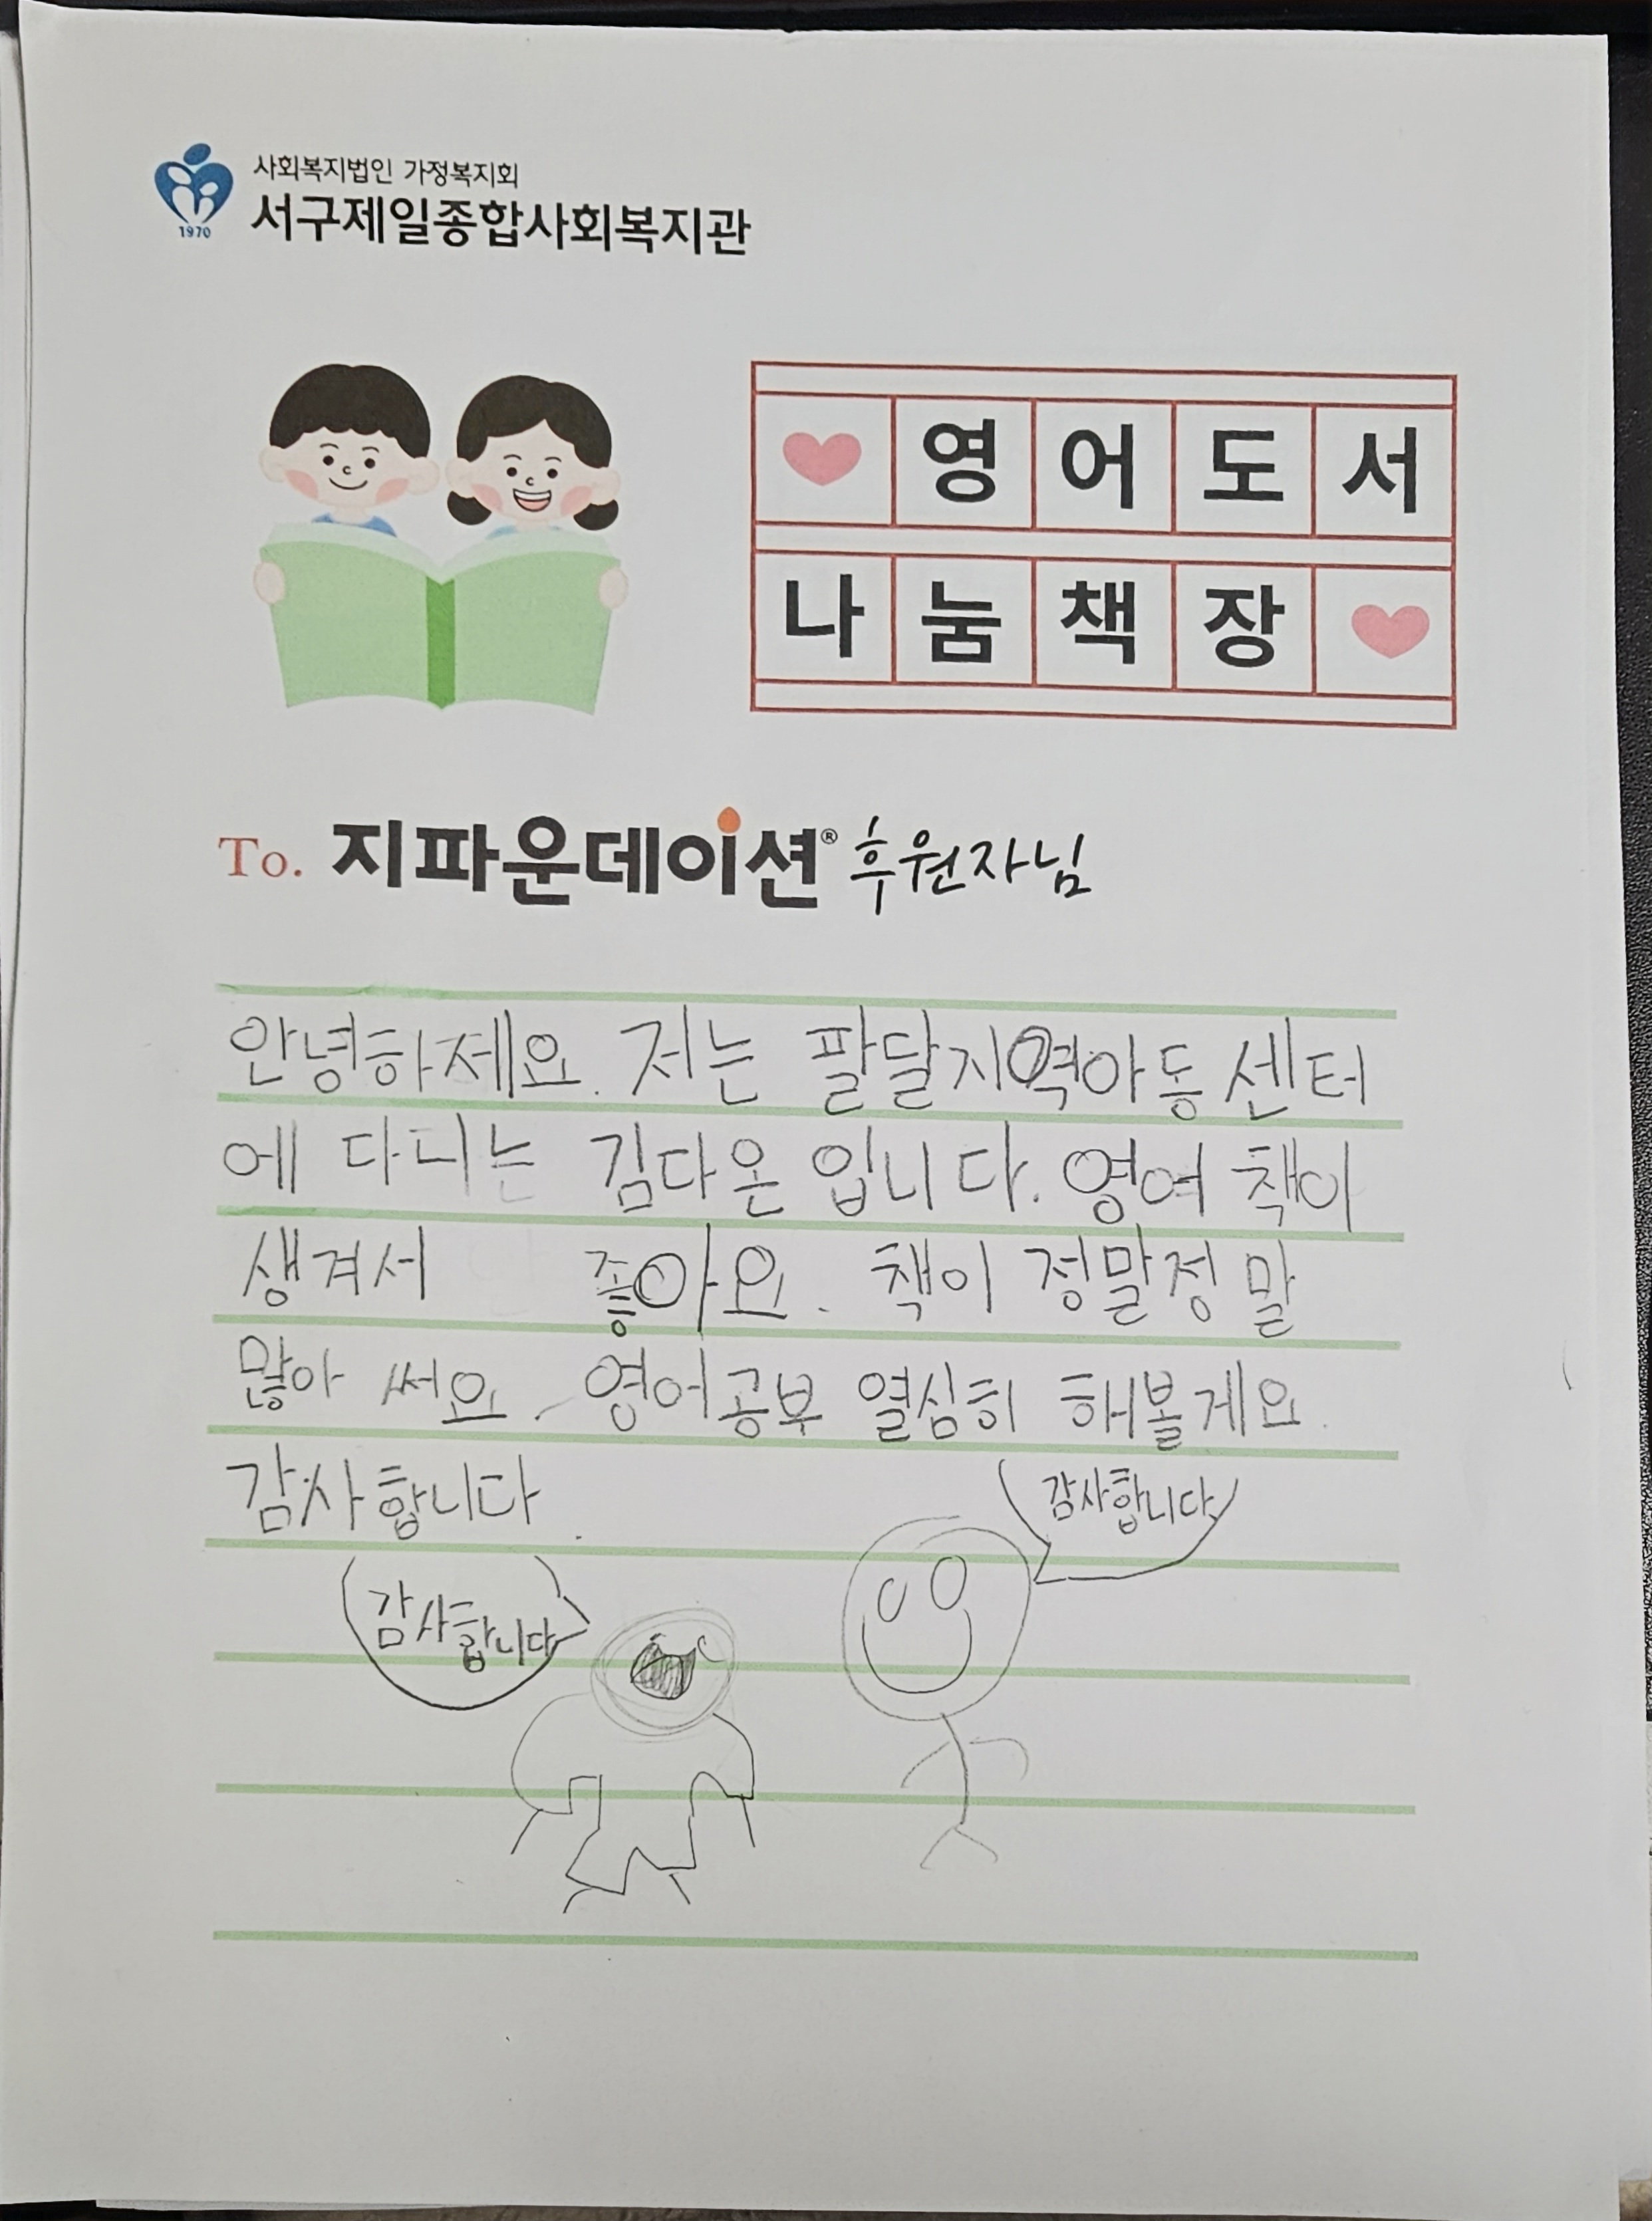 사회복지법인 가정복지회
서구제일종합사회복지관
1970
영어도서
나눔책장
To. 지파운데이션® 후원자님
안녕하제요. 저는 팔달지역아동센터
에 다니는 김다온입니다. 영여 책이
생겨서 좋아요. 책이 정말정말
많아 써요. 영어공부 열심히 해볼게요.
감사합니다.
감사합니다
감사합니다